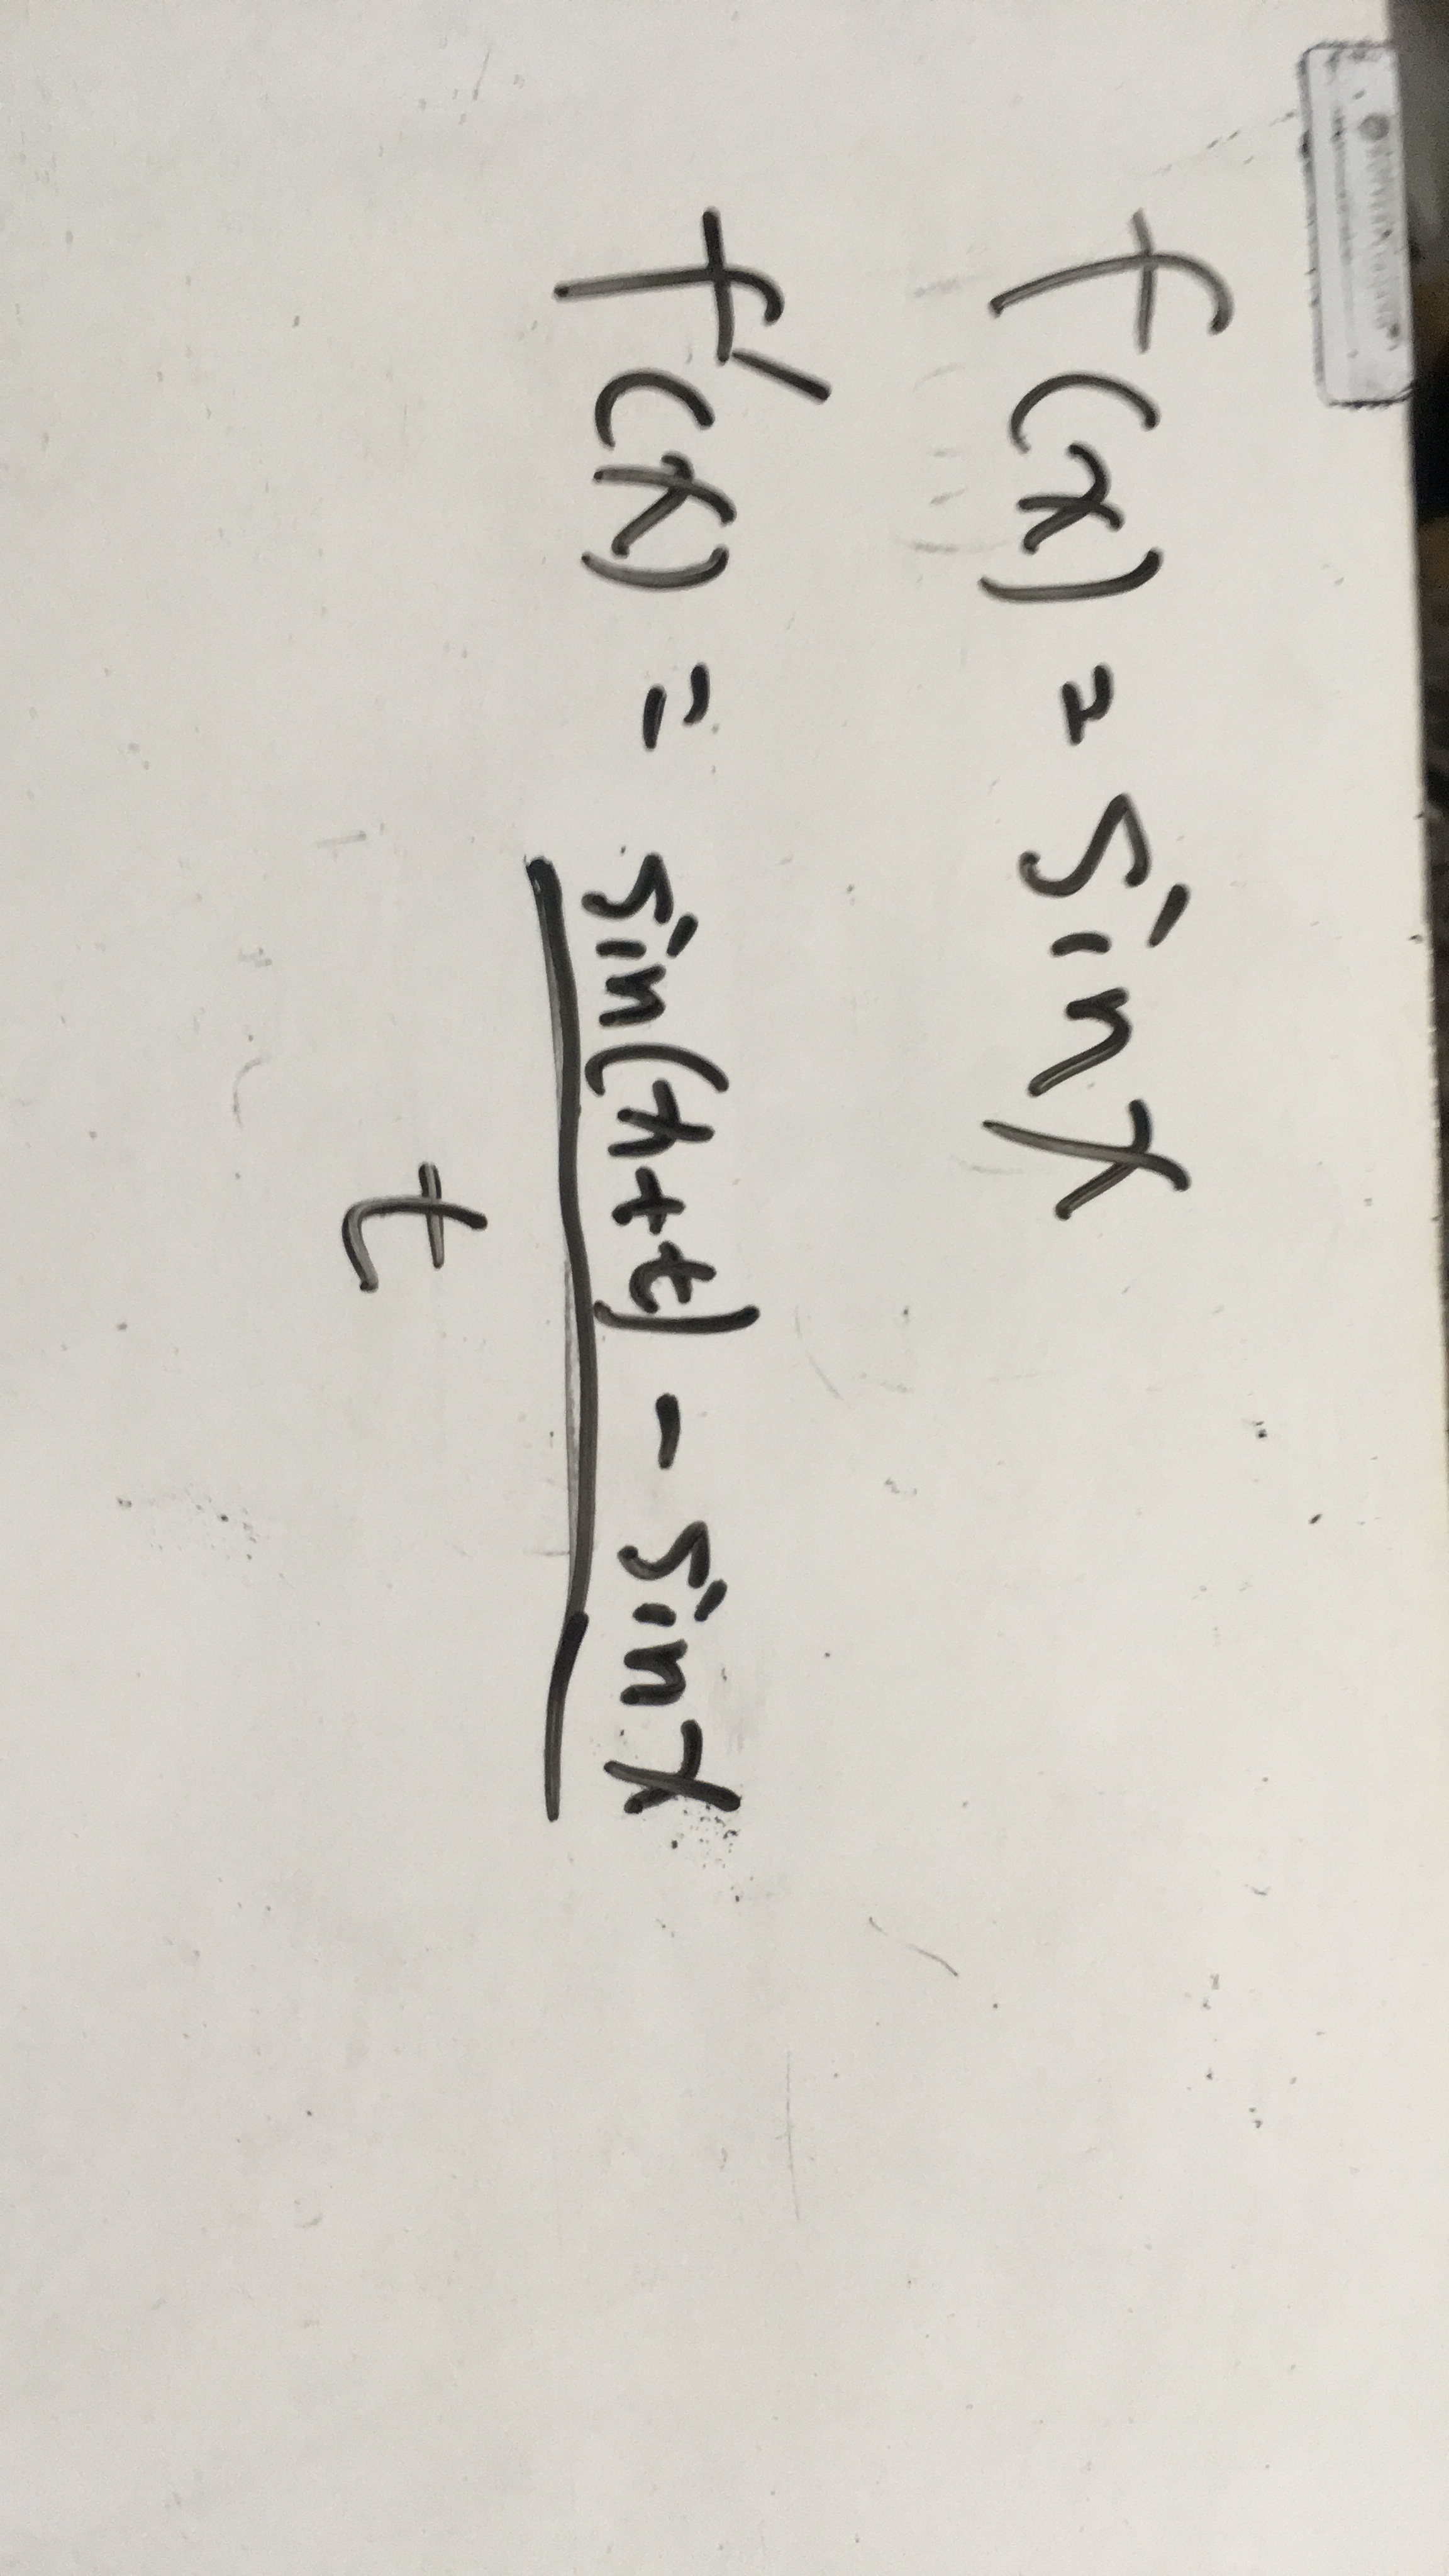 f(x) = sin x
f'(x) = sin(x+t) - sin x
t